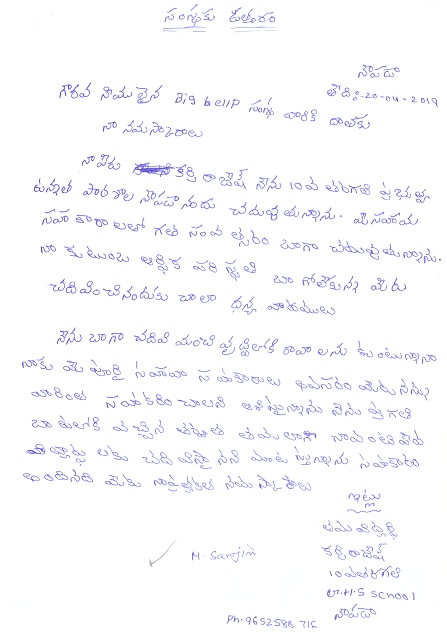 సంస్థకు ఉత్తరం
నౌపడా
తేది:-20-04-2019
గౌరవ నీయులైన Big helP సంస్థ వారికి దాతకు
నా నమస్కారాలు
నా పేరు కర్రి రాజేష్ నేను 10వ తరగతి ప్రభుత్వ
ఉన్నత పాఠశాల నౌపడా నందు చదువుతున్నాను. మీ సహాయ
సహకారాలతో గత సంవత్సరం బాగా చదువుతున్నాను.
నా కుటుంబ ఆర్థిక పరిస్థితి బాగోలేకున్నా మీరు
చదివించినందుకు చాలా ధన్యవాదములు
నేను బాగా చదివి మంచి వృద్ధిలోకి రావాలను కుంటున్నాను
నాకు మీ పూర్తి సహాయ సహకారాలు అవసరం మీరు నన్ను
సహకరించాలని ఆశిస్తున్నాను నేను ప్రగతి
బాటలోకి వచ్చిన తర్వాత తమలాగా నావంటి పేద
విద్యార్థులకు చదివిస్తానని సహకారం
అందించిన మీకు నా నమస్కారాలు
ఇట్లు
తమ విద్యార్థి
కర్రి రాజేష్
10వ తరగతి
H.S School
నౌపడా
M. Sarojini
Ph. 9652588 716